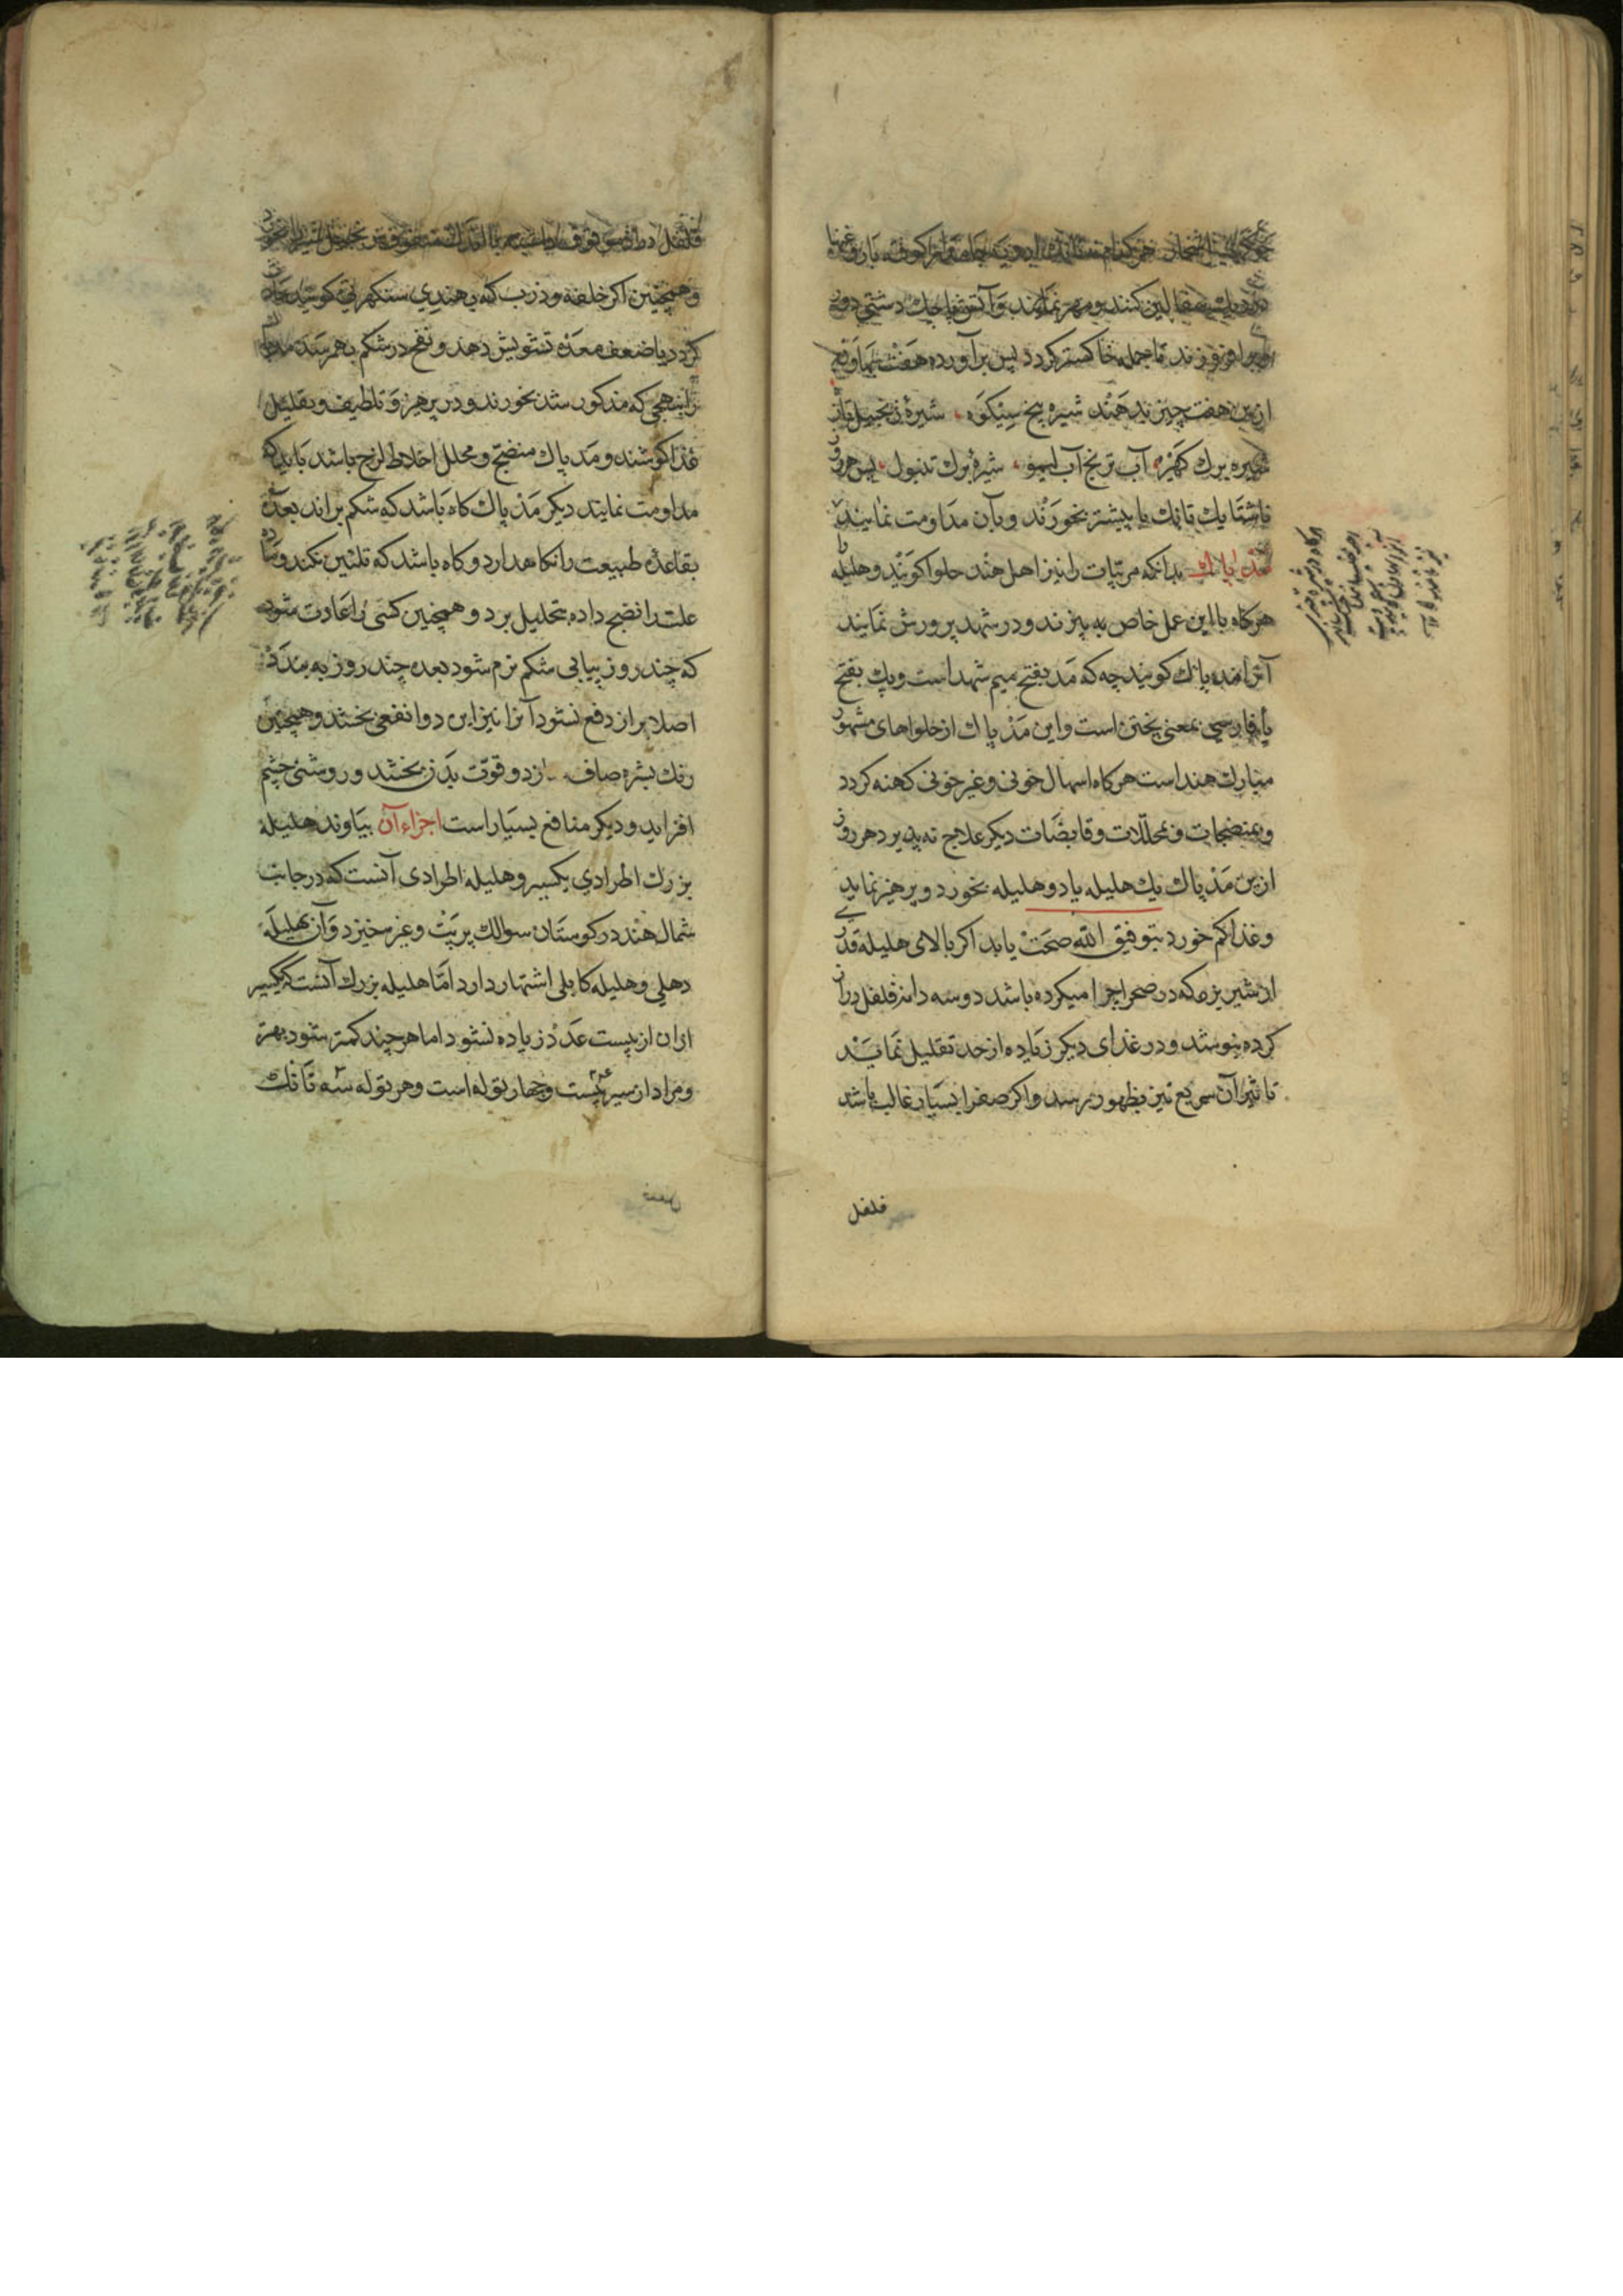 در دیک سفالین کنند و مهر نمایند و آتش پاچك دشتی دور
و بر او فروزند تا جمله خاکستر کردد پس برآورده هفت بهاونه
ازین هفت چیز بدهند شیره بیخ سینکوه شیرهٔ زنجبیل تازه
شیره برك کهیره آب ترنج آب لیمو شیرهٔ برك تنبول پس هر روز
ناشتا یك تانك یا بیشتر بخورند و بآن مداومت نمایند
مد پاك بدانکه مربّیات را نیز اهل هند حلوا کویند و هلیله را
هرکاه با این عمل خاص به پزند و در شهد پرورش نمایند
آنرا مد پاك کویند چه که مَد بفتح میم شهد است و پاك بفتح
باء فارسی بمعنی پختن است و این مَد پاك از حلواهای مشهور
مبارك هند است هرکاه اسهال خونی و غیر خونی کهنه کردد
و بمنضجات و محللّات و قابضات دیکر علاج نه پذیرد هر روز
ازین مَد پاك یك هلیله یا دو هلیله بخورد و پرهیز نماید
و غذا کم خورد بتوفیق الله صحت یابد اکر بالای هلیله قدری
از شیر بز که در صحرا چرا میکرده باشد دو سه دانه فلفل دران
کرده بنوشد و در غذای دیکر زیاده از حد تقلیل نماید
تا تاثیر آن سریع تیز بظهور رسد و اکر صفرا بسیار غالب باشد
فلفل
و همچنین اکر خلفه و ذرب که بهندی سنکهرنی کویند حادث
کردد یا ضعف معده تشویش دهد و نفخ در شکم بهم رسد مد پاك
را بنهجی که مذکور شد بخورند و در پرهیز و تلطیف و تقلیل
غذا کوشند و مد پاك منضج و محلل اخلاط لزج باشد باید که
مداومت نمایند دیکر مَد پاك کاه باشد که شکم براند بعده
بقاعدهٔ طبیعت را نکاهدارد و کاه باشد که تلئین نکند و مادهٔ
علت را نضج داده بتحلیل برد و همچنین کسی را عادت شود
که چند روز پیاپی شکم نرم شود بعده چند روز به بندد
اصلا براز دفع نشود آنرا نیز این دوا نفعی بخشد و همچنین
رنك بشره صاف سازد و قوّت بدن بخشد و روشنی چشم
افزاید و دیکر منافع بسیار است اجزاء آن بیاوند هلیلهٔ
بزرك اطرادی یکسیر و هلیله اطرادی آنست که در جانب
شمال هند در کوستان سوالك پربت و غیره خیزد و آن بهلیلهٔ
دهلی و هلیله کابلی اشتهار دارد امّا هلیله بزرك آنست که یکسیر
ازان از بیست عدد زیاده نشود اما هرچند کمتر شود بهتر
و مراد از سیر بیست و چهار توله است و هر توله سه تانك